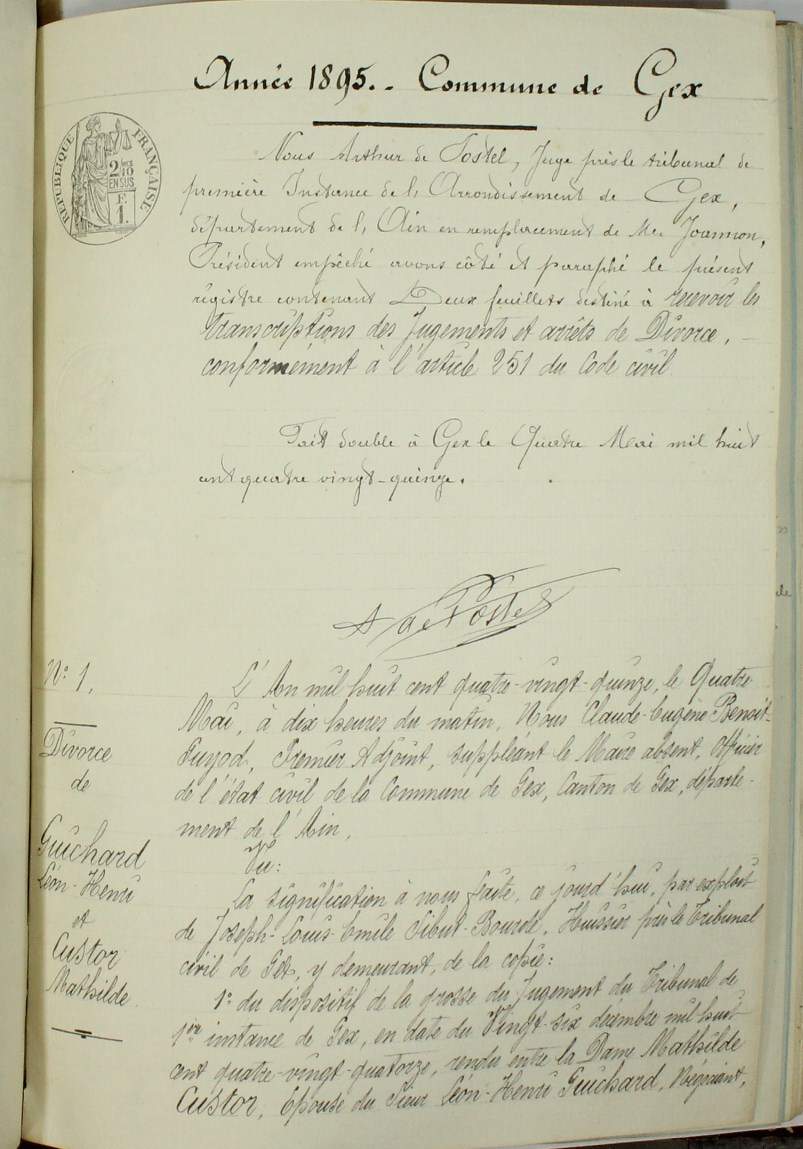 Année 1895. - Commune de Gex
RÉPUBLIQUE FRANÇAISE
2/10
EN SUS
F
1.
Nous Arthur de Postel, Juge près le tribunal de
première Instance de l'Arrondissement de Gex,
département de l'Ain en remplacement de Mr
Président empêché avons côté et paraphé le présent
registre contenant Deux feuillets destiné à recevoir les
transcriptions des Jugements et arrêts de Divorce,
conformément à l'article 251 du Code civil
Fait double à Gex le Quatre Mai mil huit
cent quatre vingt-quinze.
A de Postel
N° 1.
Divorce
de
Guichard
Léon-Henri
et
Custor
Mathilde
L'An mil huit cent quatre-vingt-quinze, le Quatre
Mai, à dix heures du matin, Nous Claude-Eugène Benoit-
Premier Adjoint, suppléant le Maire absent, Officier
de l'état civil de la Commune de Gex, Canton de Gex, départe-
ment de l'Ain,
Vu:
La signification à nous faite, ce jourd'hui, par exploit
de Joseph-Louis-Emile Huissier près le Tribunal
civil de Gex, y demeurant, de la copie:
1° du dispositif de la grosse du Jugement du Tribunal de
1ère instance de Gex, en date du Vingt-six décembre mil huit
cent quatre-vingt-quatorze, rendu entre la Dame Mathilde
Custor, Epouse du Sieur Léon-Henri Guichard, Négociant,